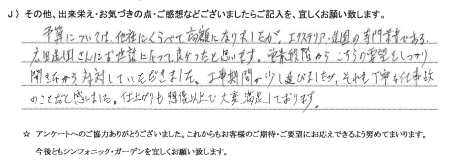 J）その他、出来栄え・お気づきの点・ご感想などございましたらご記入を、宜しくお願い致します。
予算については、他社にくらべて高額になりましたが、エクステリア・造園の専門業者である
広田造園さんにお世話になって良かったと思います。営業段階からこちらの要望もしっかり
聞きながら対応していただきました。工事期間が少し延びましたが、それも丁寧な仕事故
のことだと感じました。仕上がりも想像以上で大変満足しております。
☆ アンケートへのご協力ありがとうございました。これからもお客様のご期待・ご要望にお応えできるよう努めてまいります。
今後ともシンフォニック・ガーデンを宜しくお願い致します。